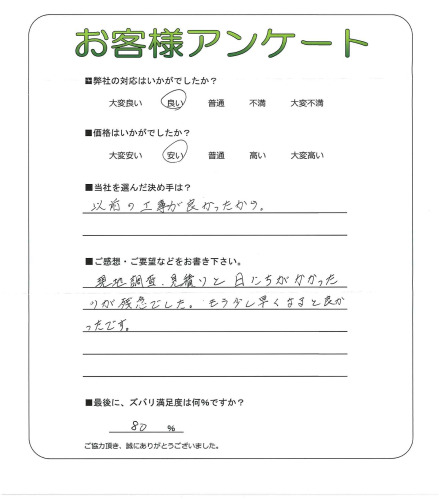 お客様アンケート
■弊社の対応はいかがでしたか？
大変良い 良い 普通 不満 大変不満
■価格はいかがでしたか？
大変安い 安い 普通 高い 大変高い
■当社を選んだ決め手は？
以前の工事が良かったから。
■ご感想・ご要望などをお書き下さい。
現地調査、見積りと日にちがかかった
のが残念でした。もう少し早くなると良か
ったです。
■最後に、ズバリ満足度は何%ですか？
80 %
ご協力頂き、誠にありがとうございました。